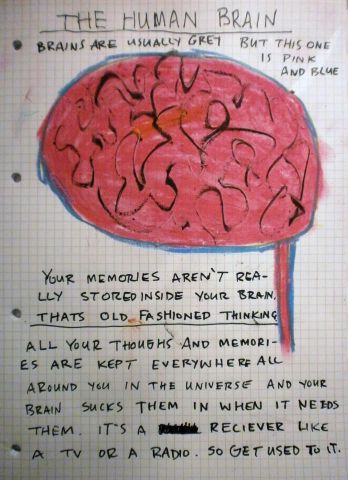 THE HUMAN BRAIN
BRAINS ARE USUALLY GREY BUT THIS ONE
IS PINK
AND BLUE
YOUR MEMORIES AREN'T REA-
LLY STORED INSIDE YOUR BRAIN.
THATS OLD FASHIONED THINKING
ALL YOUR THOUGHS AND MEMORI-
ES ARE KEPT EVERYWHERE ALL
AROUND YOU IN THE UNIVERSE AND YOUR
BRAIN SUCKS THEM IN WHEN IT NEEDS
THEM. IT'S A RECIEVER LIKE
A TV OR A RADIO. SO GET USED TO IT.